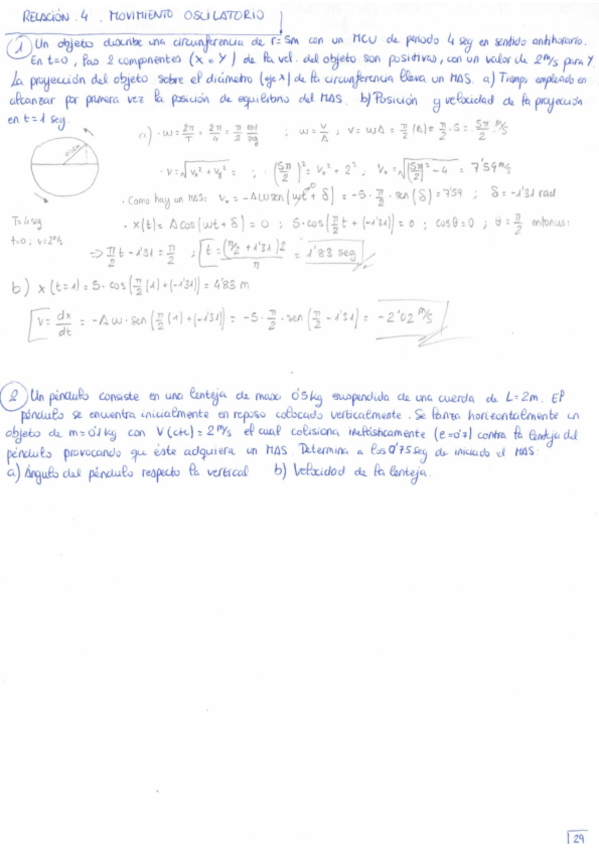 RELACIÓN. 4. MOVIMIENTO OSCILATORIO
1 Un objeto describe una circunferencia de r=5m con un MCU de periodo 4 seg en sentido antihorario.
En t=0, las 2 componentes (x e Y) de la vel. del objeto son positivas, con un valor de 2 m/s para Y.
La proyección del objeto sobre el diámetro (eje x) de la circunferencia lleva un MAS. a) Tiempo empleado en
alcanzar por primera vez la posición de equilibrio del MAS. b) Posición y velocidad de la proyección
en t=1 seg.
a) · ω = 2π/T = 2π/4 = π/2 rad/seg ; ω = v/A ; v = ωA = π/2 (A) = π/2 · 5 = 5π/2 m/s
· v = √(vx² + vy²) = ; · (5π/2)² = vx² + 2² ; vx = √([5π/2]² - 4) = 7'59 m/s
· Como hay un MAS: vx = -Aω sen(ωt + δ) = -5 · π/2 · sen(δ) = 7'59 ; δ = -1'31 rad
T=4 seg
t=0 ; v=2 m/s
· x(t) = A cos(ωt + δ) = 0 ; 5·cos(π/2 t + (-1'31)) = 0 ; cosθ = 0 ; θ = π/2 entonces:
⇒ π/2 t - 1'31 = π/2 ; t = (π/2 + 1'31)2/π = 1'83 seg
b) x(t=1) = 5·cos(π/2 (1) + (-1'31)) = 4'83 m
v = dx/dt = -Aω·sen(π/2 (1) + (-1'31)) = -5·π/2 · sen(π/2 - 1'31) = -2'02 m/s
2 Un péndulo consiste en una lenteja de masa 0'5 kg suspendida de una cuerda de L=2m. El
péndulo se encuentra inicialmente en reposo colocado verticalmente. Se lanza horizontalmente un
objeto de m=0'1 kg con V(cte)=2 m/s el cual colisiona inelásticamente (e=0'7) contra la lenteja del
péndulo provocando que éste adquiera un MAS. Determina a los 0'75 seg de iniciado el MAS:
a) Ángulo del péndulo respecto la vertical b) Velocidad de la lenteja.
29